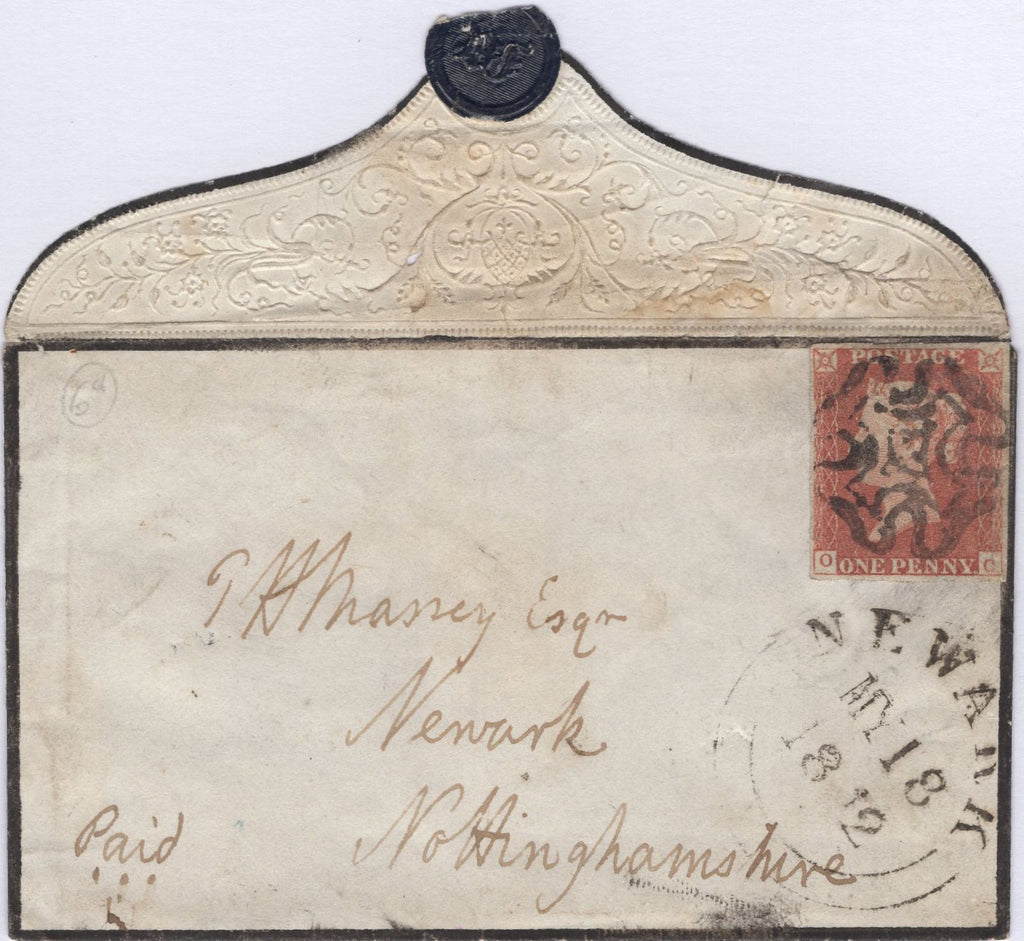 6d
POSTAGE
O ONE PENNY C
T H Massey Esqr
Newark
Nottinghamshire
Paid
NEWARK
MY 18
1842